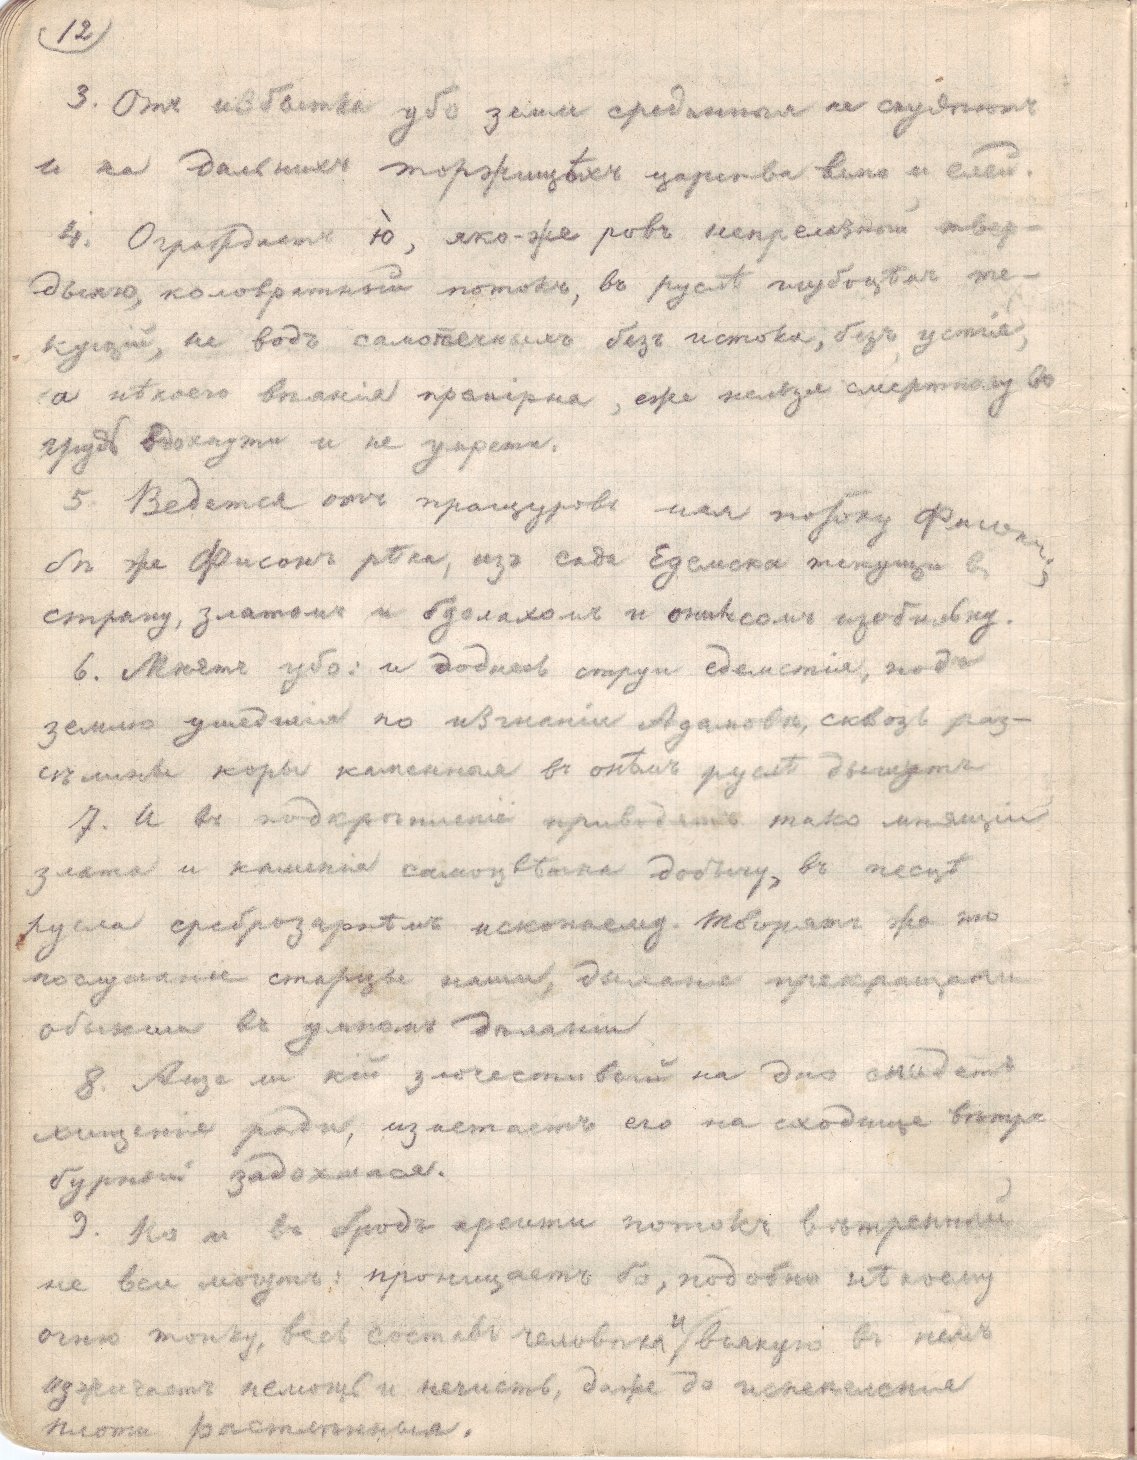 12
3. Отъ избытка убо земли срединныя не скудѣютъ
и на дальнихъ торжищѣхъ царства вино и елей.
4. Ограждаетъ ю̀, яко-же ровъ непрелазный твер-
дыню, коловратный потокъ, въ руслѣ глубоцѣмъ те-
кущій, не водъ самотечныхъ безъ истока, безъ устія,
а нѣкоего вѣянія праэирна, еже нельзя смертному въ
грудь вдохнути и не умрети.
5. Ведется отъ пращуровъ имя потоку Фисонъ;
бѣ же Фисонъ рѣка, изъ сада Едемска текущи въ
страну, златомъ и бдолахомъ и ониксомъ изобильну.
6. Мнятъ убо: и доднесь струи едемстія, подъ
землю ушедшія по изгнаніи Адамовѣ, сквозь раз-
сѣлины коры каменныя въ онѣмъ руслѣ дышутъ
7. И въ подкрѣпленіе приводятъ тако мнящіи
злата и каменія самоцвѣтна добычу, въ песцѣ
русла среброзарнѣмъ ископаему. Творятъ же то
послушаніе старцы наши, дыханіе прекращати
обыкши въ умномъ дѣланіи
8. Аще ли кій злочестивый на дно снидетъ
хищенія ради, измещетъ его на сходище вѣтръ
бурный задохшася.
9. Но и въ бродъ преити потокъ вѣтренный
не вси могутъ: проницаетъ бо, подобно нѣкоему
огню тонку, весь составъ человѣка и всякую въ немъ
изжигаетъ немощь и нечисть, даже до испепеленія
плоти растлѣнныя.